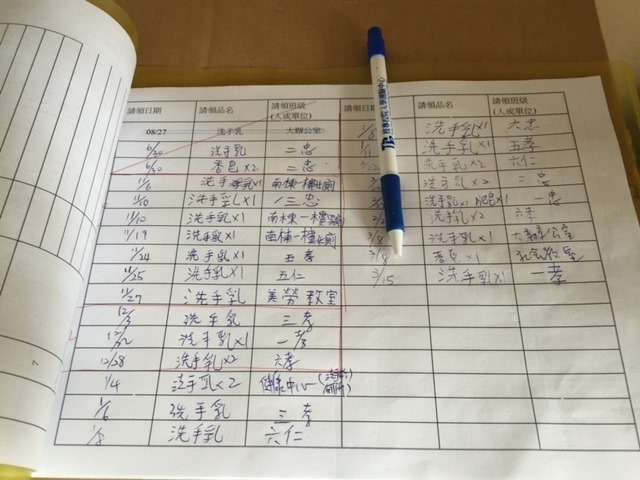 請領日期 請領品名 請領班級(人或單位)
08/27 洗手乳 大辦公室
洗手乳 二忠
香皂×2 二忠
11/6 洗手乳×1 南棟一樓
11/10 洗手乳×1 三忠
11/10 洗手乳×1 南棟一樓
11/19 洗手乳×1 南棟一樓
11/24 洗手乳×1 五孝
11/25 洗手乳×1 五仁
11/27 洗手乳 美勞教室
12/3 洗手乳 三孝
洗手乳×1 一孝
12/28 洗手乳×2 六孝
1/4 洗手乳×2 健康中心
1/6 洗手乳 三孝
1/8 洗手乳 六仁
請領日期 請領品名 請領班級(人或單位)
1/8 洗手乳×1 六忠
洗手乳×1 五孝
洗手乳×2 六仁
洗手乳×2 二忠
洗手乳×1 一忠
洗手乳×2 六孝
3/8 洗手乳×1 大辦公室
3/8 香皂×1
3/15 洗手乳×1 一孝